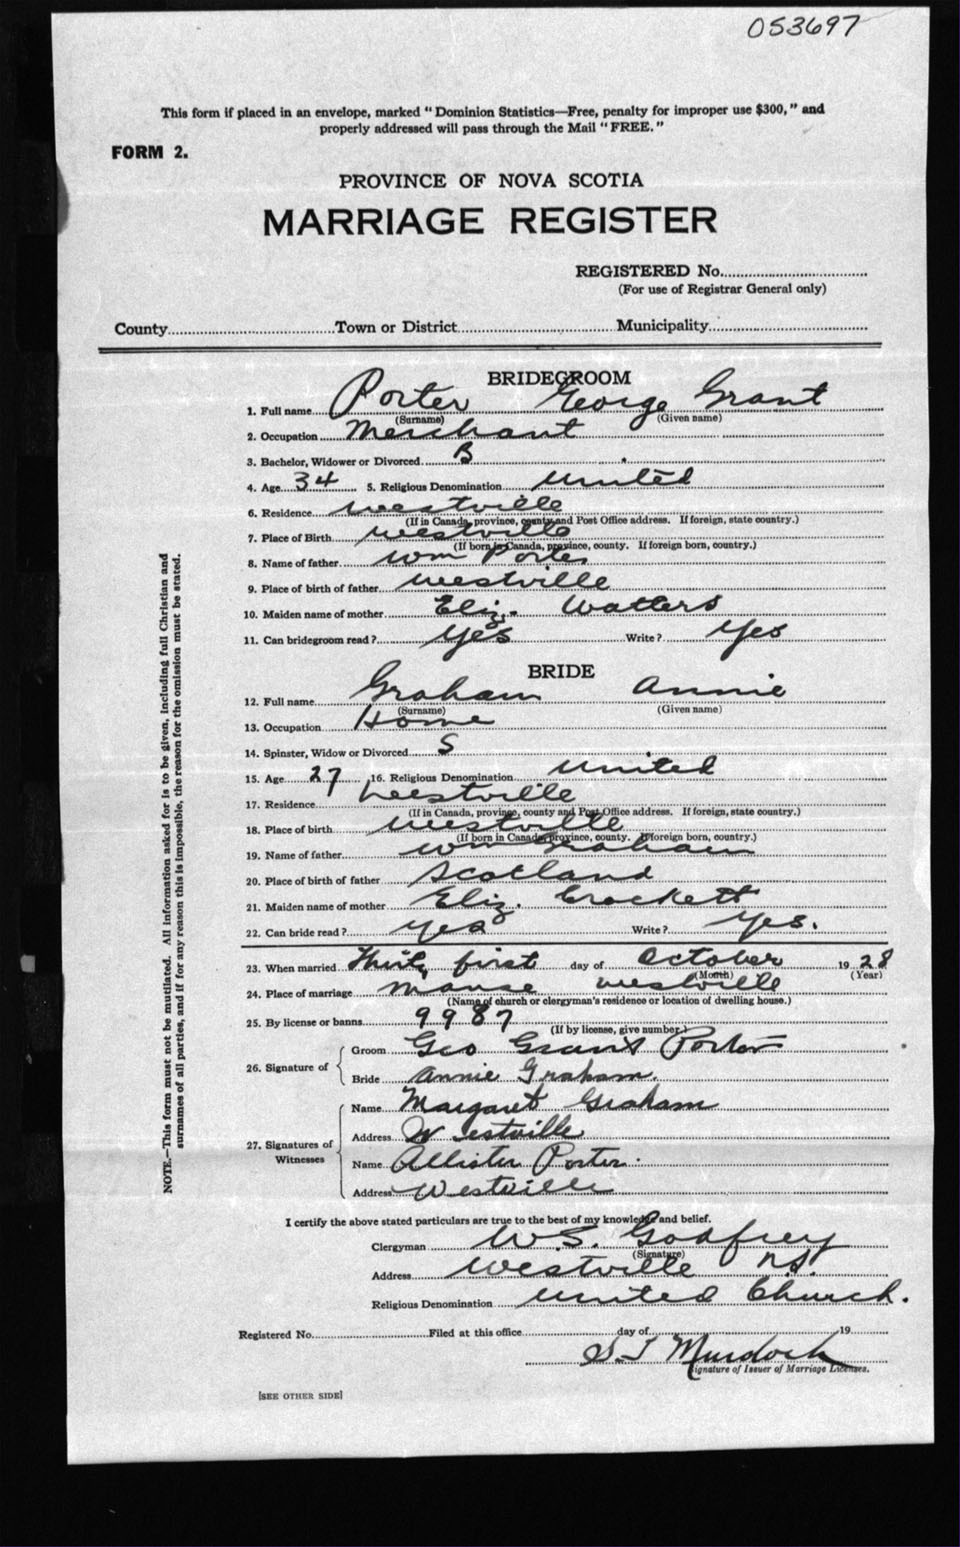 053697
This form if placed in an envelope, marked "Dominion Statistics—Free, penalty for improper use $300," and
properly addressed will pass through the Mail "FREE."
FORM 2.
PROVINCE OF NOVA SCOTIA
MARRIAGE REGISTER
REGISTERED No.
(For use of Registrar General only)
County Town or District Municipality
BRIDEGROOM
1. Full name Porter George Grant
(Surname) (Given name)
2. Occupation Merchant
3. Bachelor, Widower or Divorced B
4. Age 34 5. Religious Denomination United
6. Residence Westville
(If in Canada, province, county and Post Office address. If foreign, state country.)
7. Place of Birth Westville
(If born in Canada, province, county. If foreign born, country.)
8. Name of father Wm Porter
9. Place of birth of father Westville
10. Maiden name of mother Eliz. Watters
11. Can bridegroom read? Yes Write? Yes
BRIDE
12. Full name Graham Annie
(Surname) (Given name)
13. Occupation Home
14. Spinster, Widow or Divorced S
15. Age 27 16. Religious Denomination United
17. Residence Westville
(If in Canada, province, county and Post Office address. If foreign, state country.)
18. Place of birth Westville
(If born in Canada, province, county. If foreign born, country.)
19. Name of father Wm Graham
20. Place of birth of father Scotland
21. Maiden name of mother Eliz. Crockett
22. Can bride read? Yes Write? Yes.
23. When married Thirty first day of October 1928
(Month) (Year)
24. Place of marriage Manse Westville
(Name of church or clergyman's residence or location of dwelling house.)
25. By license or banns 9987
(If by license, give number.)
26. Signature of
Groom Geo Grant Porter
Bride Annie Graham.
27. Signatures of Witnesses
Name Margaret Graham
Address Westville
Name Allister Porter.
Address Westville
I certify the above stated particulars are true to the best of my knowledge and belief.
Clergyman W.S. Godfrey
(Signature)
Address Westville N.S.
Religious Denomination United Church.
Registered No. Filed at this office day of 19
S J Murdoch
Signature of Issuer of Marriage Licenses.
[SEE OTHER SIDE]
NOTE.—This form must not be mutilated. All information asked for is to be given, including full Christian and
surnames of all parties, and if for any reason this is impossible, the reason for the omission must be stated.